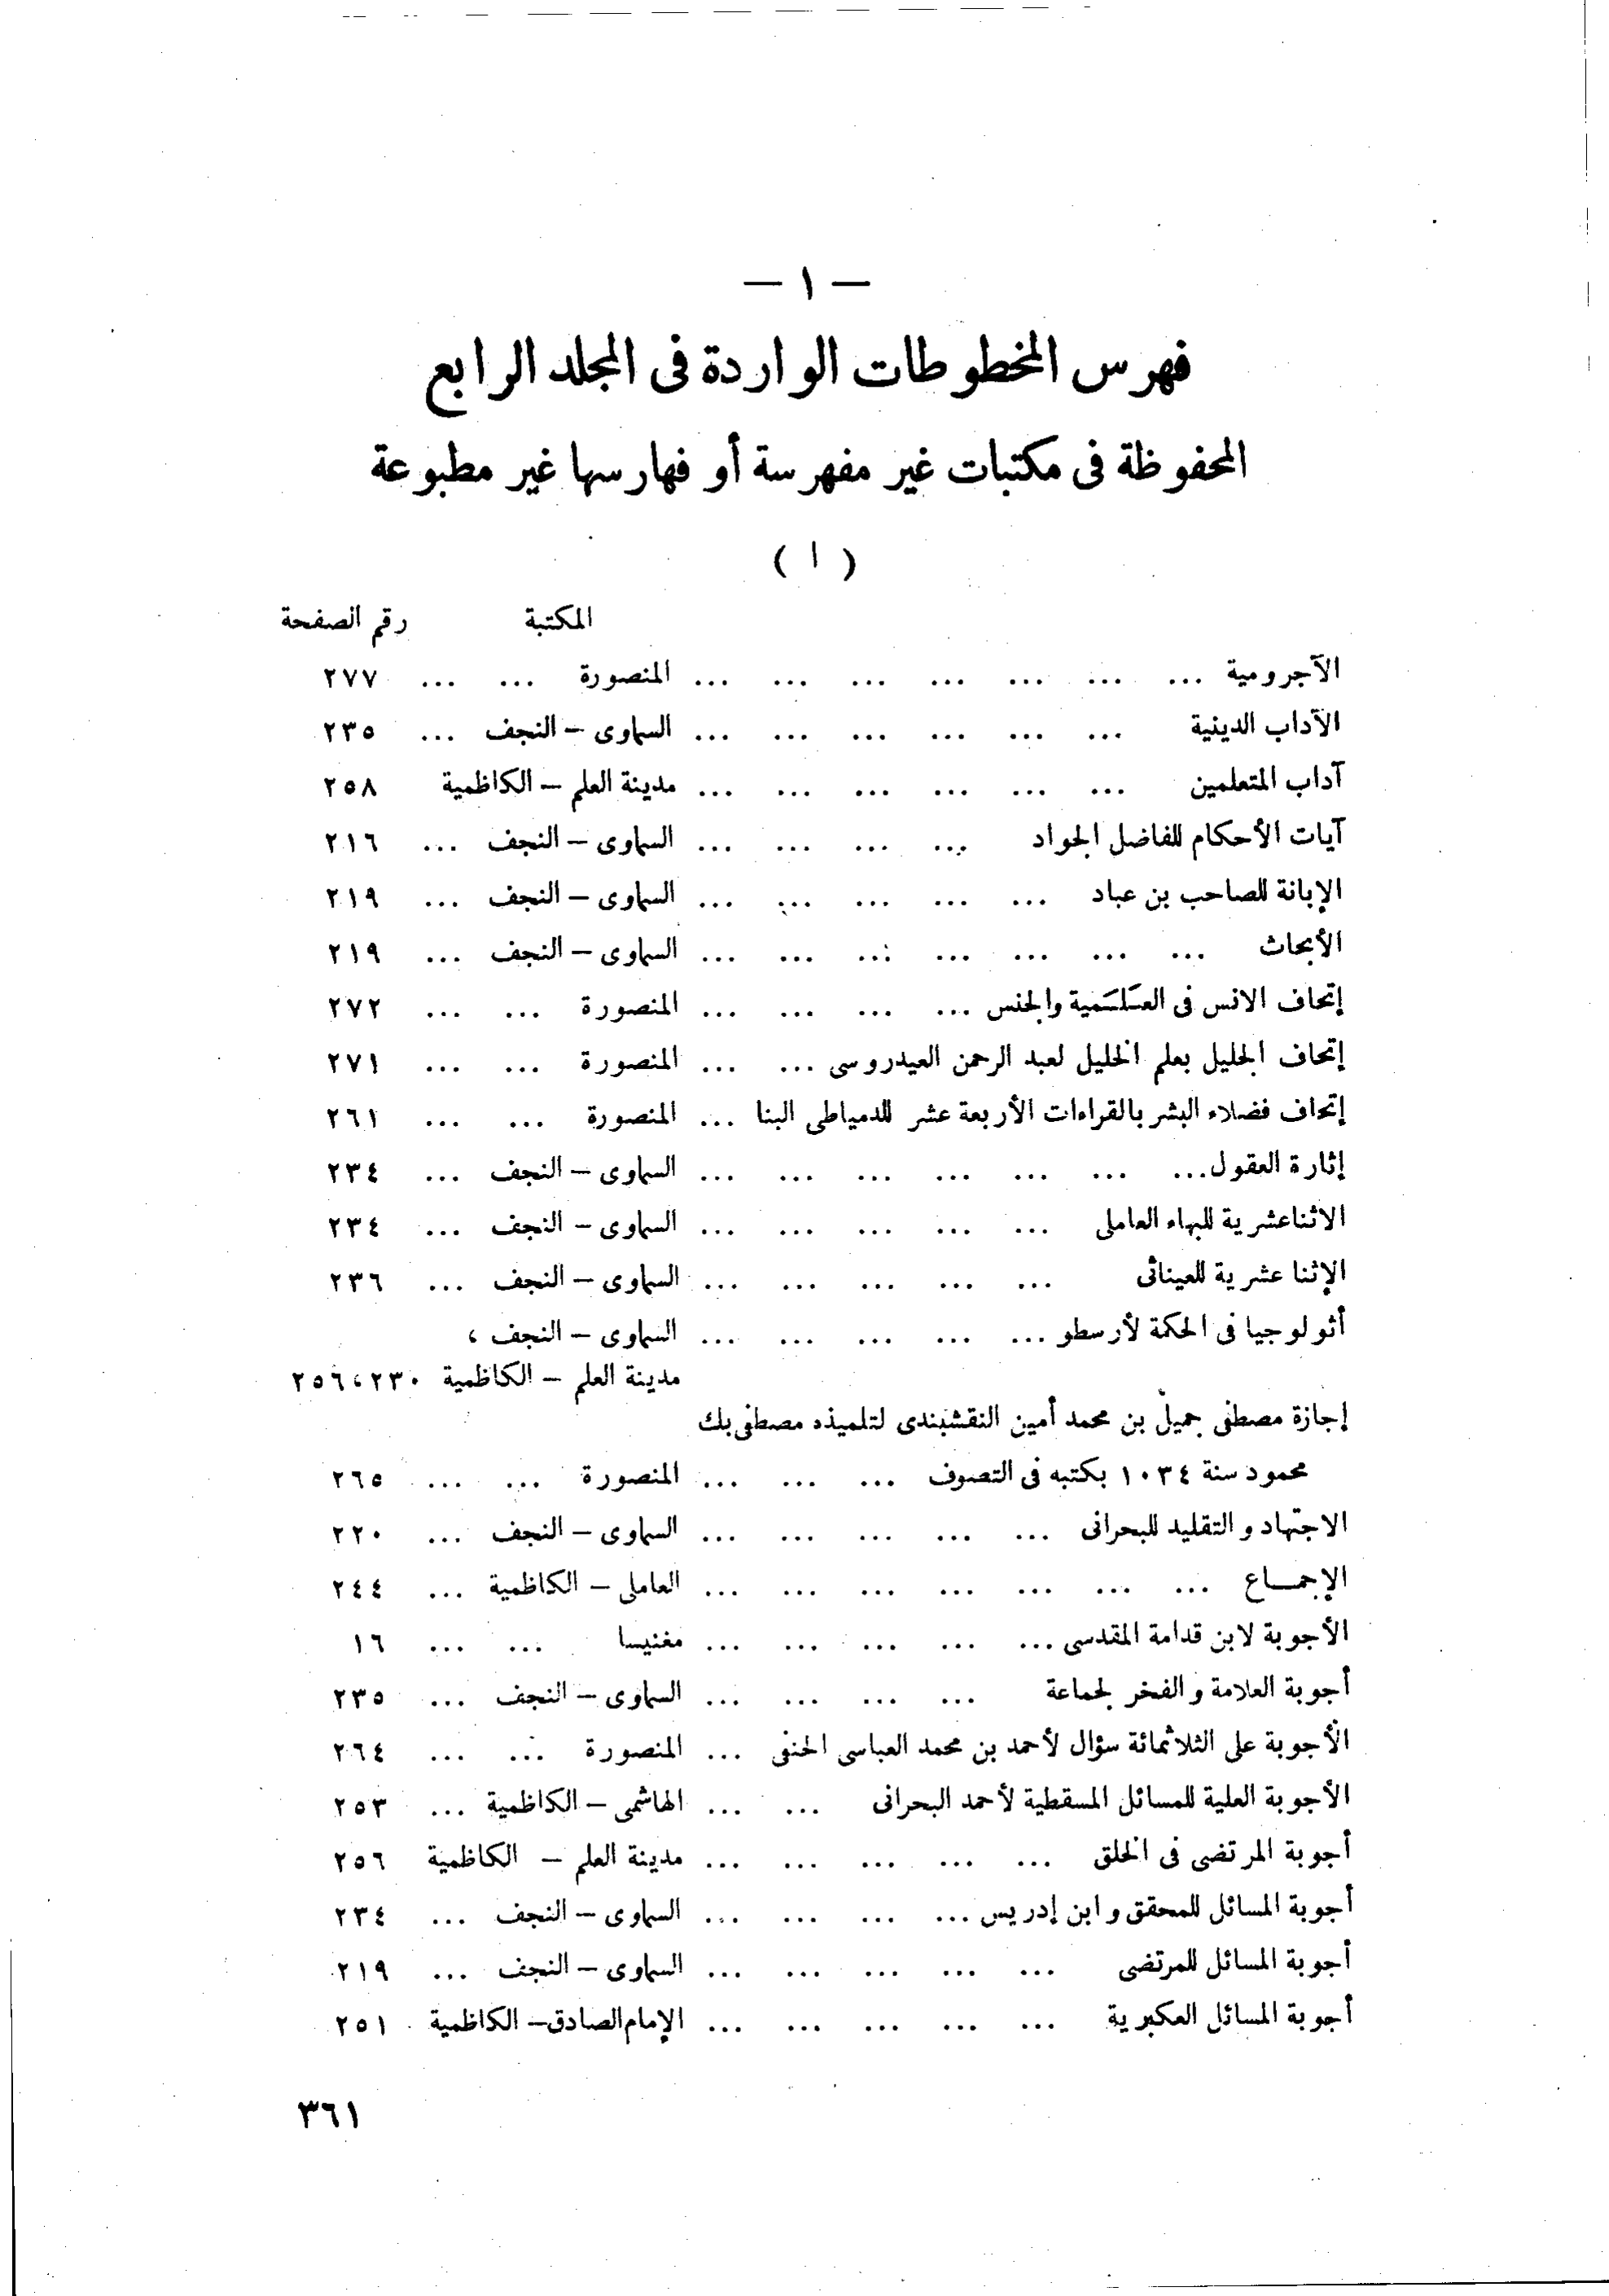 — ١ —
فهرس المخطوطات الواردة فى المجلد الرابع
المحفوظة فى مكتبات غير مفهرسة أو فهارسها غير مطبوعة
( ا )
المكتبة رقم الصفحة
الآجرومية ... ... ... ... ... ... ... المنصورة ... ... ٢٧٧
الآداب الدينية ... ... ... ... ... ... السماوى – النجف ... ٢٣٥
آداب المتعلمين ... ... ... ... ... ... مدينة العلم – الكاظمية ٢٥٨
آيات الأحكام للفاضل الجواد ... ... ... ... السماوى – النجف ... ٢١٦
الإبانة للصاحب بن عباد ... ... ... ... ... السماوى – النجف ... ٢١٩
الأبحاث ... ... ... ... ... ... ... السماوى – النجف ... ٢١٩
إتحاف الانس فى العلمية والجنس ... ... ... ... المنصورة ... ... ٢٧٢
إتحاف الجليل بعلم الخليل لعبد الرحمن العيدروسى ... ... المنصورة ... ... ٢٧١
إتحاف فضلاء البشر بالقراءات الأربعة عشر للدمياطى البنا ... المنصورة ... ... ٢٦١
إثارة العقول ... ... ... ... ... ... ... السماوى – النجف ... ٢٣٤
الاثناعشرية للبهاء العاملى ... ... ... ... ... السماوى – النجف ... ٢٣٤
الإثنا عشرية للعيناثى ... ... ... ... ... السماوى – النجف ... ٢٣٦
أثولوجيا فى الحكمة لأرسطو ... ... ... ... ... السماوى – النجف ،
مدينة العلم – الكاظمية ٢٣٠ ، ٢٥٦
إجازة مصطفى جميل بن محمد أمين النقشبندى لتلميذه مصطفى بك
محمود سنة ١٠٣٤ بكتبه فى التصوف ... ... ... المنصورة ... ... ٢٦٥
الاجتهاد والتقليد للبحرانى ... ... ... ... ... السماوى – النجف ... ٢٢٠
الإجمــاع ... ... ... ... ... ... ... العاملى – الكاظمية ... ٢٤٤
الأجوبة لابن قدامة المقدسى ... ... ... ... ... مغنيسا ... ... ١٦
أجوبة العلامة والفخر لجماعة ... ... ... ... السماوى – النجف ... ٢٣٥
الأجوبة على الثلاثمائة سؤال لأحمد بن محمد العباسى الحنفى ... المنصورة ... ... ٢٦٤
الأجوبة العلية للمسائل المسقطية لأحمد البحرانى ... ... الهاشمى – الكاظمية ... ٢٥٣
أجوبة المرتضى فى الخلق ... ... ... ... ... مدينة العلم – الكاظمية ٢٥٦
أجوبة المسائل للمحقق وابن إدريس ... ... ... ... السماوى – النجف ... ٢٣٤
أجوبة المسائل للمرتضى ... ... ... ... ... السماوى – النجف ... ٢١٩
أجوبة المسائل العكبرية ... ... ... ... ... الإمام الصادق – الكاظمية ٢٥١
٣٦١